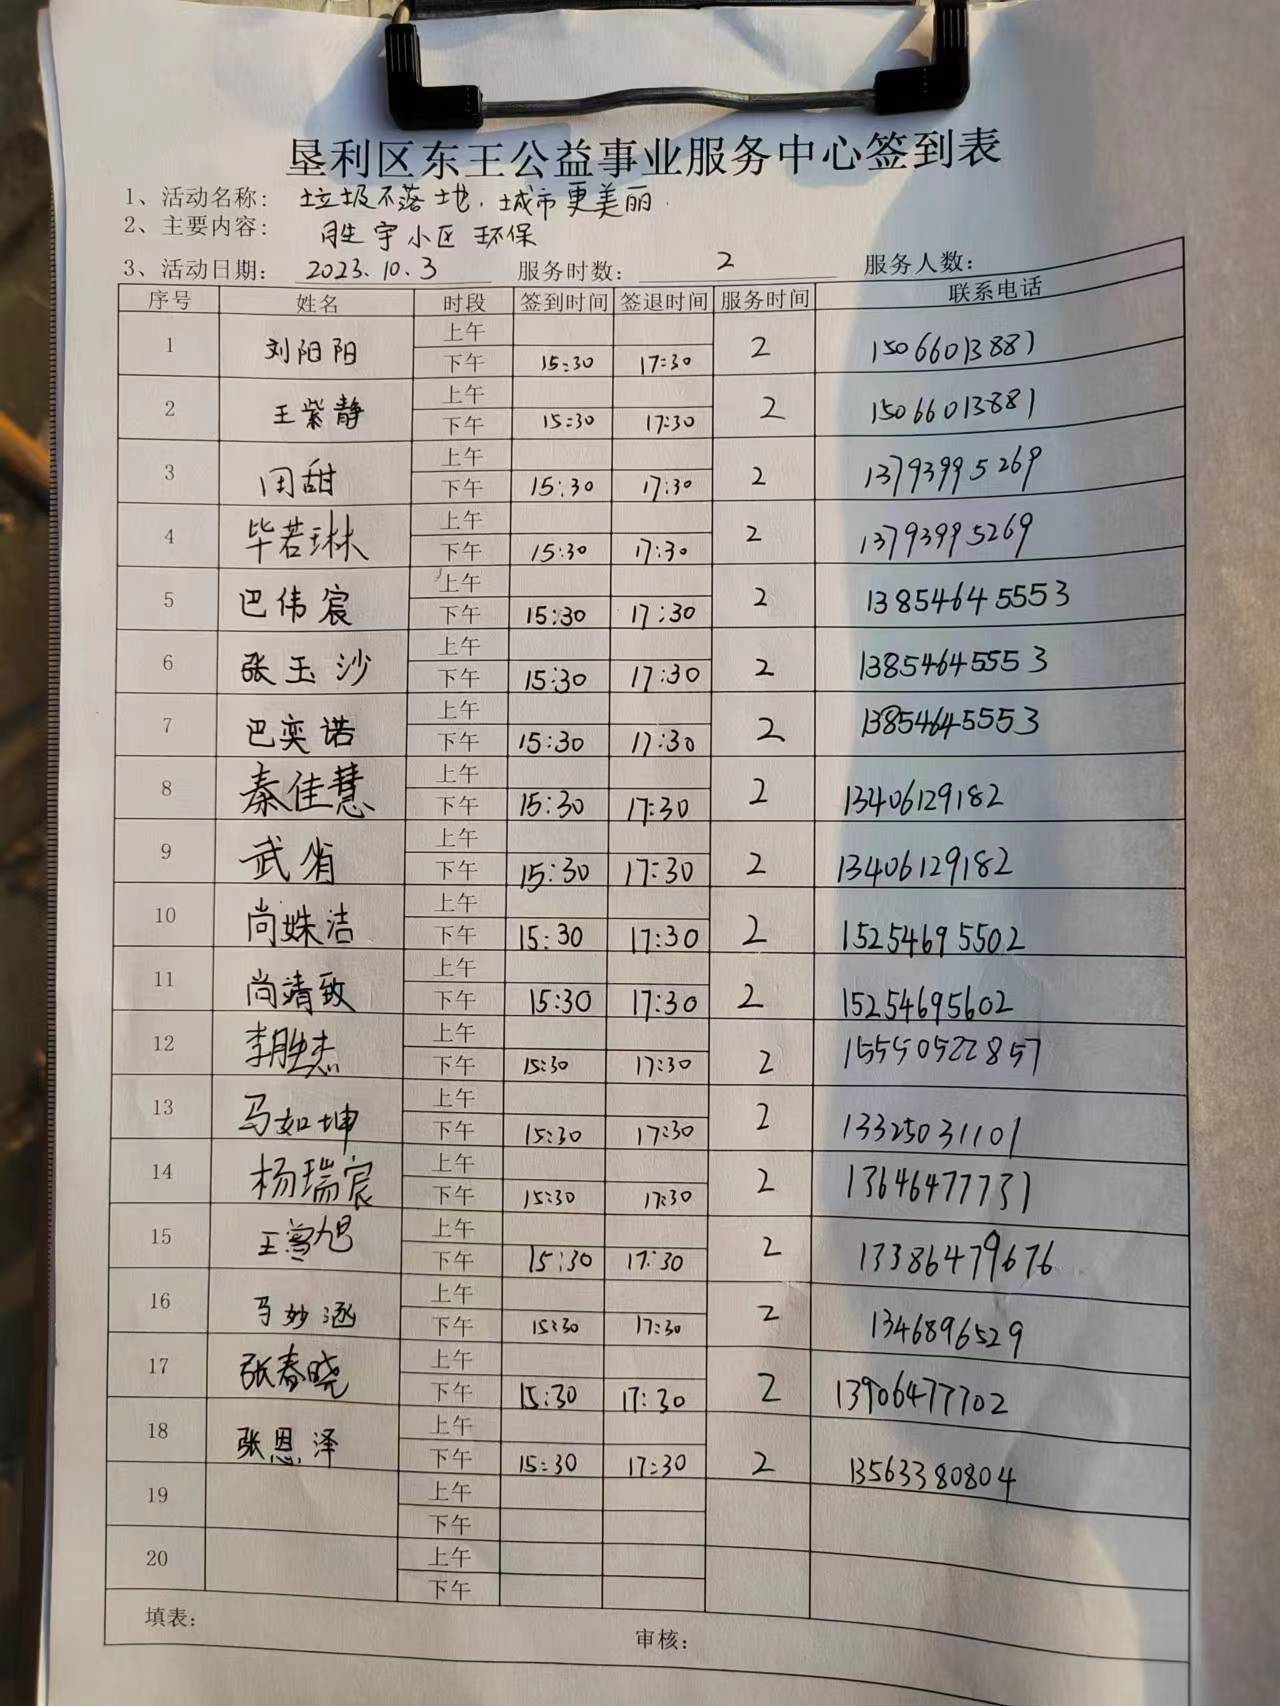 垦利区东王公益事业服务中心签到表
1、活动名称: 垃圾不落地.城市更美丽.
2、主要内容: 胜宇小区 环保
3、活动日期: 2023.10.3 服务时数: 2 服务人数:
序号 姓名 时段 签到时间 签退时间 服务时间 联系电话
1 刘阳阳 上午 2 15066013881
下午 15:30 17:30
2 王紫静 上午 2 15066013881
下午 15:30 17:30
3 田甜 上午 2 13793995269
下午 15:30 17:30
4 毕若琳 上午 2 13793995269
下午 15:30 17:30
5 巴伟宸 上午 2 13854645553
下午 15:30 17:30
6 张玉沙 上午 2 13854645553
下午 15:30 17:30
7 巴奕诺 上午 2 13854645553
下午 15:30 17:30
8 秦佳慧 上午 2 13406129182
下午 15:30 17:30
9 武省 上午 2 13406129182
下午 15:30 17:30
10 尚姝洁 上午 2 15254695502
下午 15:30 17:30
11 尚靖致 上午 2 15254695602
下午 15:30 17:30
12 李胜杰 上午 2 15550522857
下午 15:30 17:30
13 马如坤 上午 2 13325031101
下午 15:30 17:30
14 杨瑞宸 上午 2 13646477731
下午 15:30 17:30
15 上午 2 13386479676
下午 15:30 17:30
16 马妙涵 上午 2 1346896529
下午 15:30 17:30
17 张春晓 上午 2 13906477702
下午 15:30 17:30
18 张恩泽 上午 2 13563380804
下午 15:30 17:30
19 上午
下午
20 上午
下午
填表: 审核: